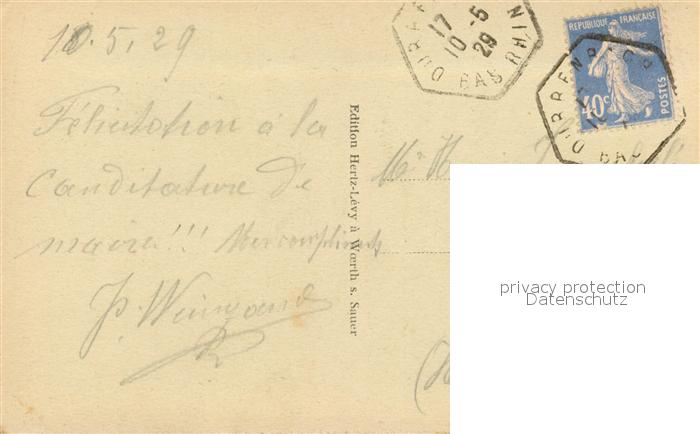 10.5.29
Félicitation à la
canditature de
maire!!! Mes compliments
Edition Hertz-Lévy à Wœrth s. Sauer
17
10-5
29
BAS RHIN
REPUBLIQUE FRANÇAISE
40c
POSTES
DURRENBACH
BAS
privacy protection
Datenschutz